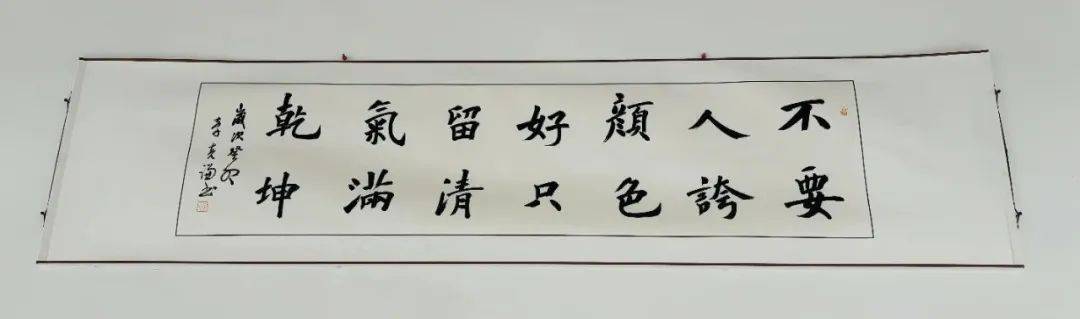 不要
人誇
顏色
好只
留清
氣滿
乾坤
歲次癸卯
李克謙書